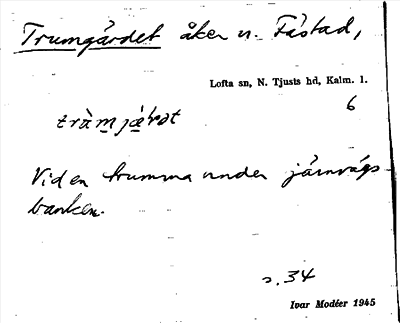 Trumgärdet åker n. Fåstad,
Lofta sn, N. Tjusts hd, Kalm. l.
6
Vid en trumma under järnvägs-
banken.
s. 34
Ivar Modéer 1945